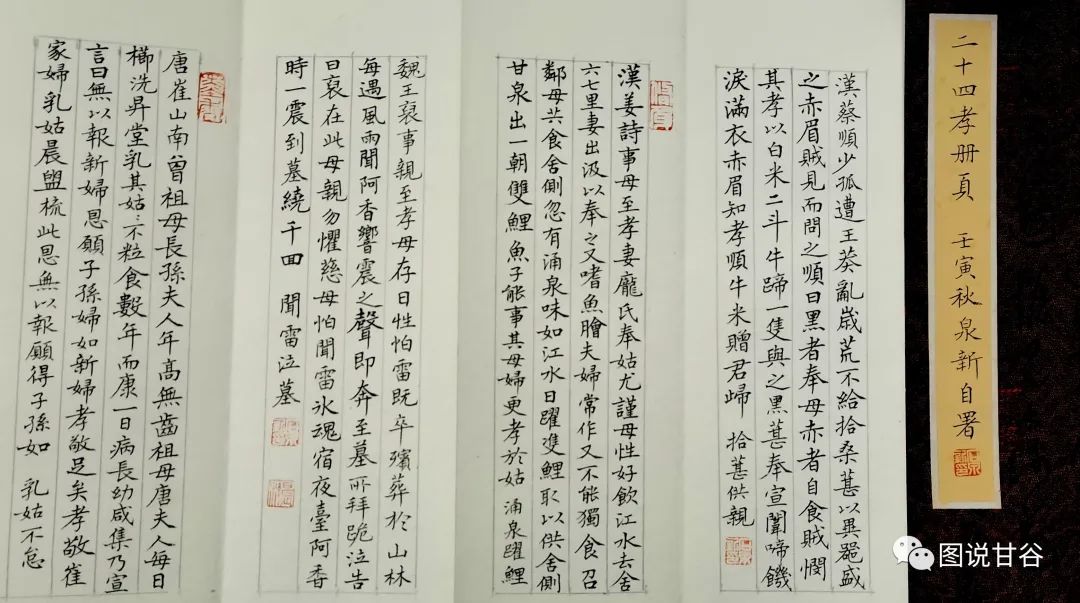 二十四孝册頁 壬寅秋泉新自署
漢蔡順少孤遭王莽亂嵗荒不給拾桑葚以異器盛
之赤眉賊見而問之順曰黑者奉母赤者自食賊憫
其孝以白米二斗牛蹄一隻與之黑葚奉宣闈啼饑
淚滿衣赤眉知孝順牛米贈君歸 拾葚供親
漢姜詩事母至孝妻龐氏奉姑尤謹母性好飲江水去舍
六七里妻出汲以奉之又嗜魚膾夫婦常作又不能獨食召
鄰母共食舍側忽有涌泉味如江水日躍雙鯉取以供舍側
甘泉出一朝雙鯉魚子能事其母婦更孝於姑 涌泉躍鯉
魏王裒事親至孝母存日性怕雷既卒殯葬於山林
每遇風雨聞阿香響震之聲即奔至墓所拜跪泣告
曰裒在此母親勿懼慈母怕聞雷冰魂宿夜臺阿香
時一震到墓繞千回 聞雷泣墓
唐崔山南曾祖母長孫夫人年高無齒祖母唐夫人每日
櫛洗昇堂乳其姑:不粒食數年而康一日病長幼咸集乃宣
言曰無以報新婦恩願子孫婦如新婦孝敬足矣孝敬崔
家婦乳姑晨盥梳此恩無以報願得子孫如 乳姑不怠
图说甘谷